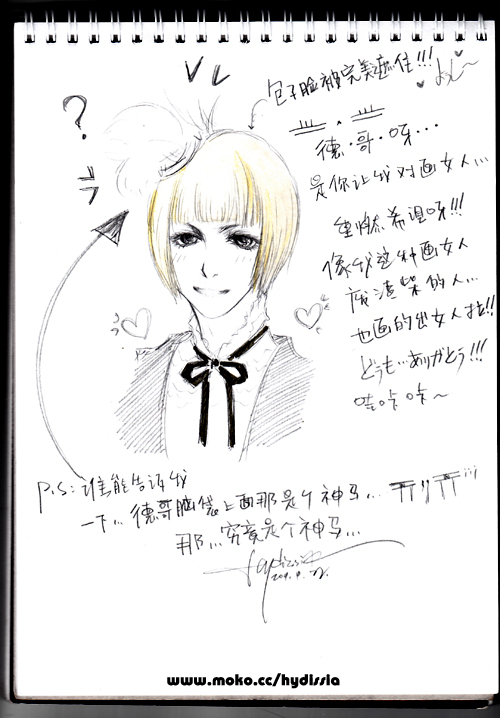 包子脸被完美遮住!!!
德·哥·呀...
是你让我对画女人...
重燃希望呀!!!
像我这种画女人
废渣柴的人...
也画的出女人拉!!
どうも...ありがとう!!!
咔咔~
?
P.S:谁能告诉我
一下... 德哥脑袋上面那是个神马...
那...究竟是个神马...
www.moko.cc/hydissia